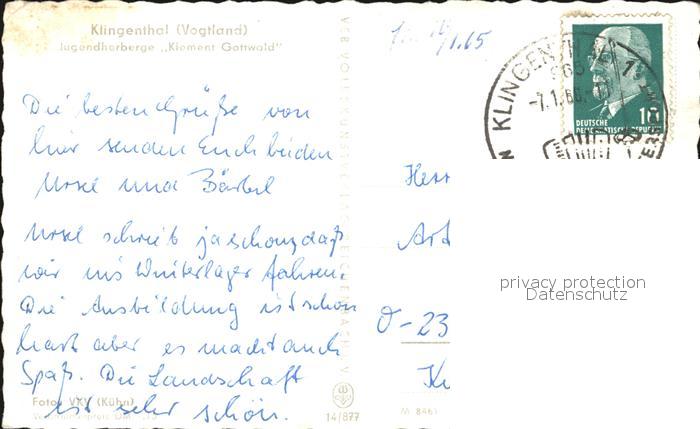 Klingenthal (Vogtland)
Jugendherberge „Klement Gottwald"
Die besten Grüße von
hier senden Euch beiden
Ursel und Bärbel
Ursel schrieb ja schon, daß
wir ins Winterlager fahren.
Die Ausbildung ist schon
hart aber es macht auch
Spaß. Die Landschaft
ist sehr schön.
Foto: VKV (Kühn)
14/877
M 846
1.65
KLINGENTHAL
-7.1.66
DEUTSCHE
DEMOKRATISCHE REPUBLIK
10
Herr
Art
O-23
privacy protection
Datenschutz